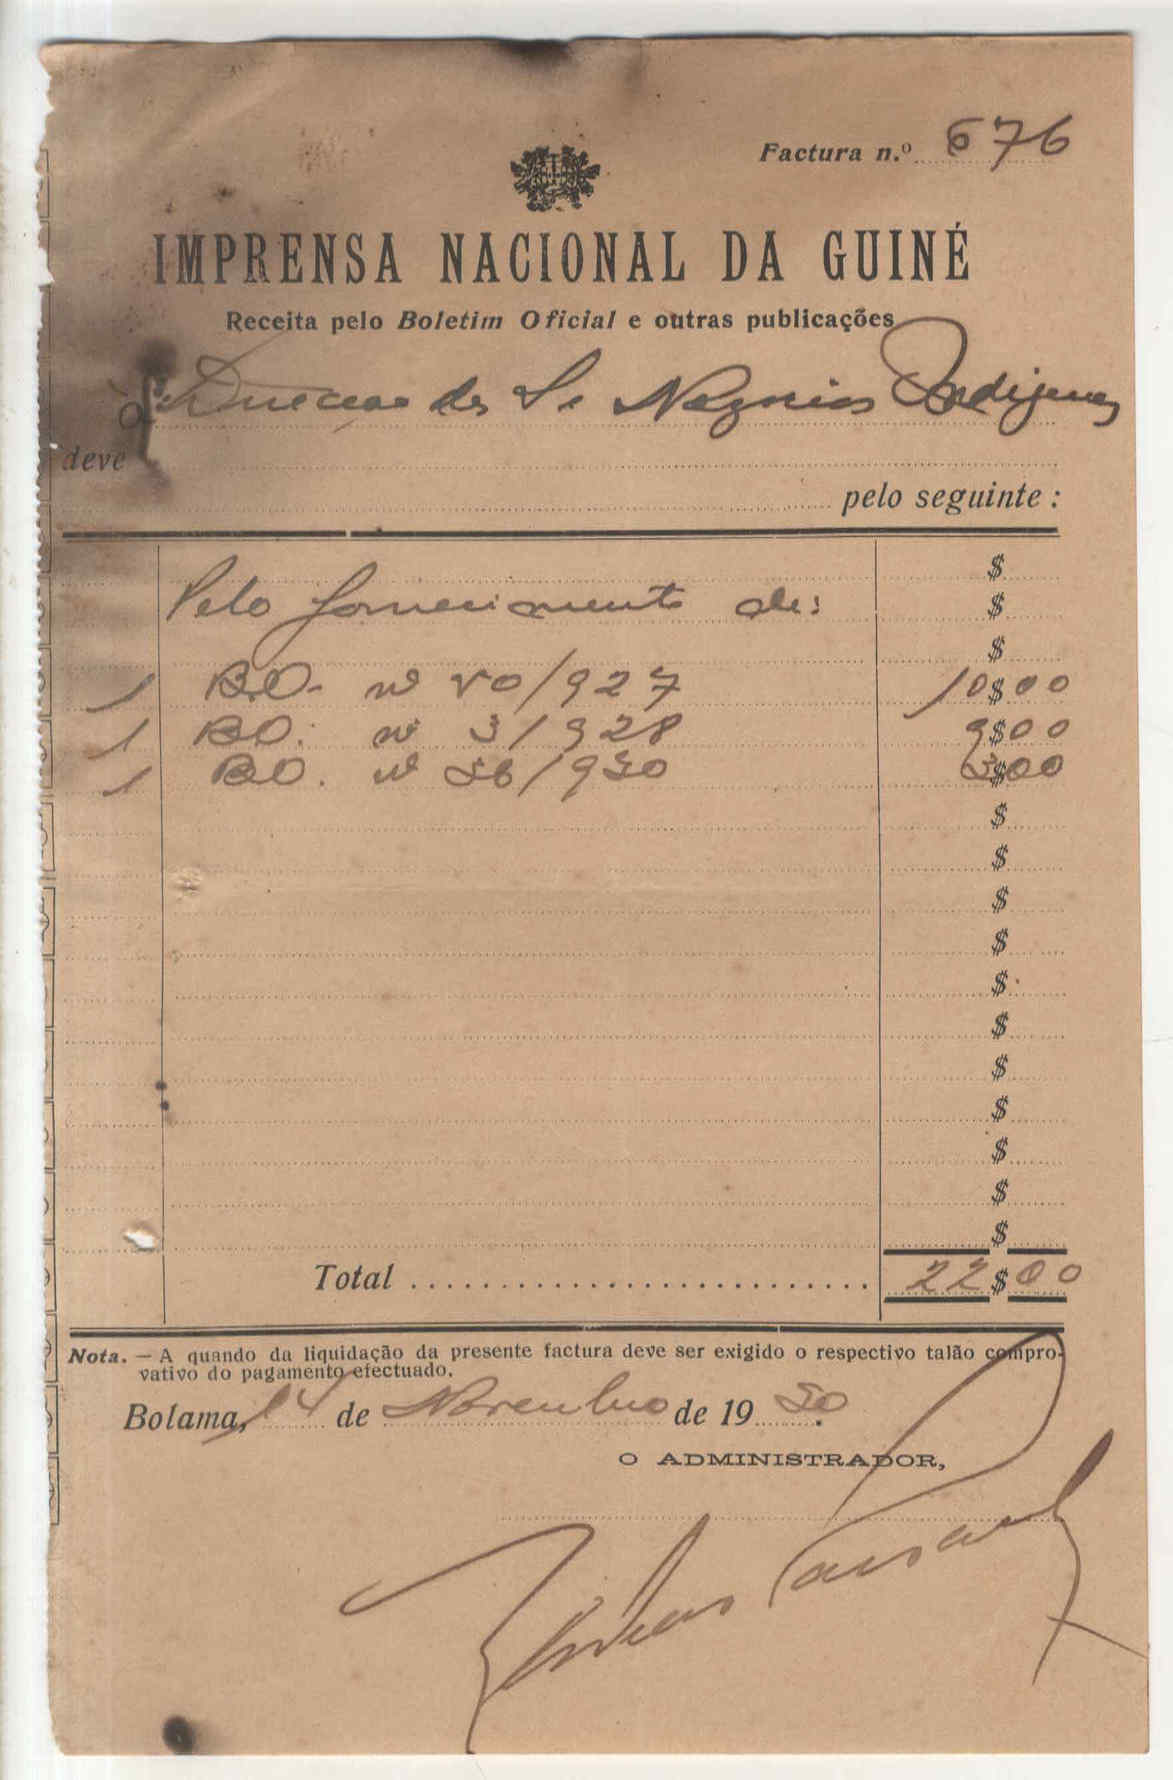 Factura n.º 676
IMPRENSA NACIONAL DA GUINÉ
Receita pelo Boletim Oficial e outras publicações
A Direcção dos S. e Negocios Indigenas
deve
pelo seguinte :
$
Pelo fornecimento de: $
$
1 B.O. nº 50/927 10$00
1 B.O. nº 3/928 9$00
1 B.O. nº 36/930 3$00
$
$
$
$
$
$
$
$
$
$
$
Total ........................... 22$00
Nota. — A quando da liquidação da presente factura deve ser exigido o respectivo talão compro-
vativo do pagamento efectuado.
Bolama, 14 de Novembro de 1930.
O ADMINISTRADOR,